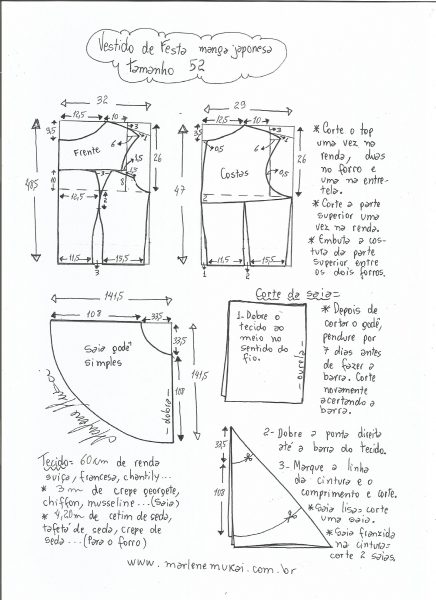 Vestido de Festa manga japonesa
tamanho 52
32
12,5
10
9,5
3
1
6
Frente
26
48,5
4,5
1,5
10
3
8
10,5
2
11,5
15,5
3
29
12,5
10
3,5
3
1
0,5
6
26
Costas
0,5
47
2
11,5
15,5
1
2
* Corte o top
uma vez na
renda, duas
no forro e
uma na entre-
tela.
* Corte a parte
superior uma
vez na renda.
* Embuta a cos-
tura da parte
superior entre
os dois forros.
141,5
108
33,5
Saia godê
simples
33,5
108
141,5
- dobra -
Marlene Mukai
Corte da saia=
1- Dobre o
tecido ao
meio no
sentido do
fio.
- ourela -
* Depois de
cortar o godê,
pendure por
7 dias antes
de fazer a
barra. Corte
novamente
acertando a
barra.
2- Dobre a ponta direita
até a barra do tecido.
3- Marque a linha
da cintura e o
comprimento e corte.
* Saia lisa= corte
uma saia.
* Saia franzida
na cintura=
corte 2 saias.
33,5
108
Tecido= 60cm de renda
suiça, francesa, chantily...
* 3m de crepe georgete,
chiffon, musseline...(Saia)
* 4,20m de cetim de seda,
tafetá de seda, crepe de
seda...(Para o forro)
www.marlenemukai.com.br